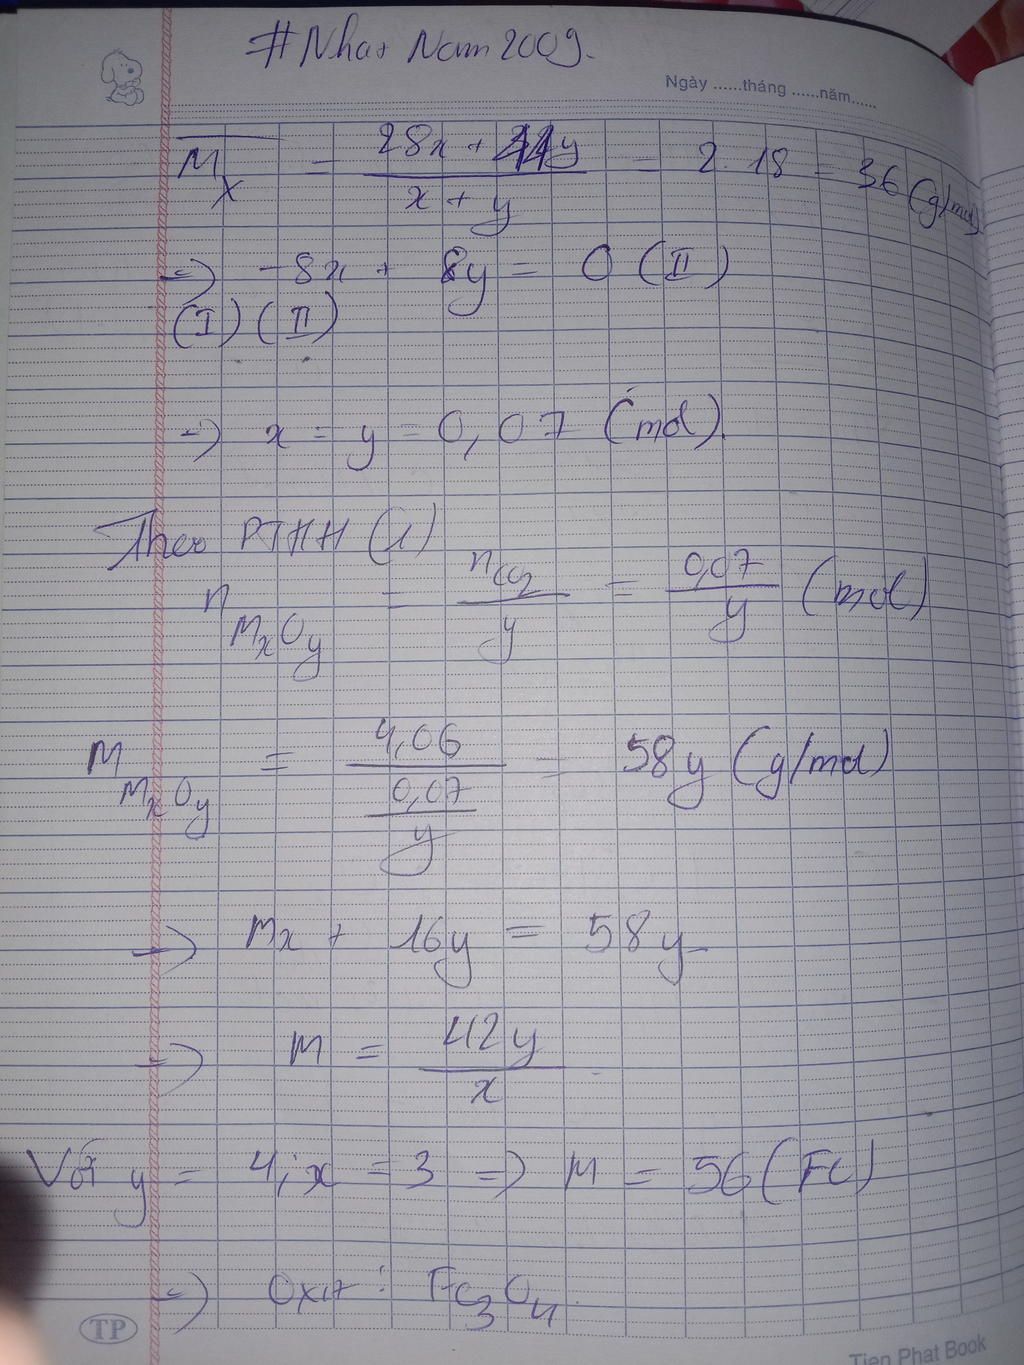 #Nhat Nam 2009.
Ngày ......tháng ......năm......
M̅_X = (28x + 44y)/(x + y) = 2.18 = 36 (g/mol)
=> -8x + 8y = 0 (II)
(I) (II)
=> x = y = 0,07 (mol).
Theo PTHH (1)
n_MxOy = n_CO2/y = 0,07/y (mol)
M_MxOy = 4,06/(0,07/y) = 58y (g/mol)
=> Mx + 16y = 58y
=> M = 42y/x
Với y = 4; x = 3 => M = 56 (Fe)
=> Oxit : Fe3O4
TP
Tien Phat Book